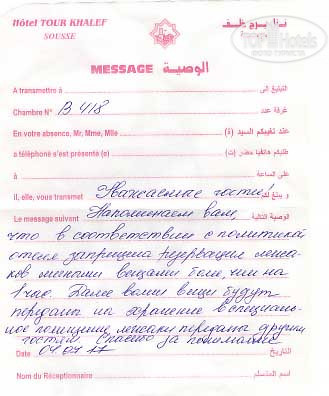 Hôtel TOUR KHALEF
SOUSSE
نزل برج خلف
TopHotels
MESSAGE الوصية
A transmettre à التبليغ إلى
Chambre N° B 418 غرفة عدد
En votre absence, Mr. Mme, Mlle عند تغيبكم السيد (ة)
a téléphoné s'est présenté (e) طلبكم هاتفيا حضر (ت)
à على الساعة
il, elle, vous transmet Уважаемые гости! و يبلغ لكم
Le message suivant Напоминаем вам, الوصية التالية
что в соответствии с политикой
отеля запрещена резервация лежа-
ков личными вещами более, чем на
1 час. Далее ваши вещи будут
переданы на хранение в специаль-
ное помещение, лежаки переданы другим
гостям. Спасибо за понимание
Date 04 07 17 التاريخ
Nom du Réceptionnaire اسم المتسلم